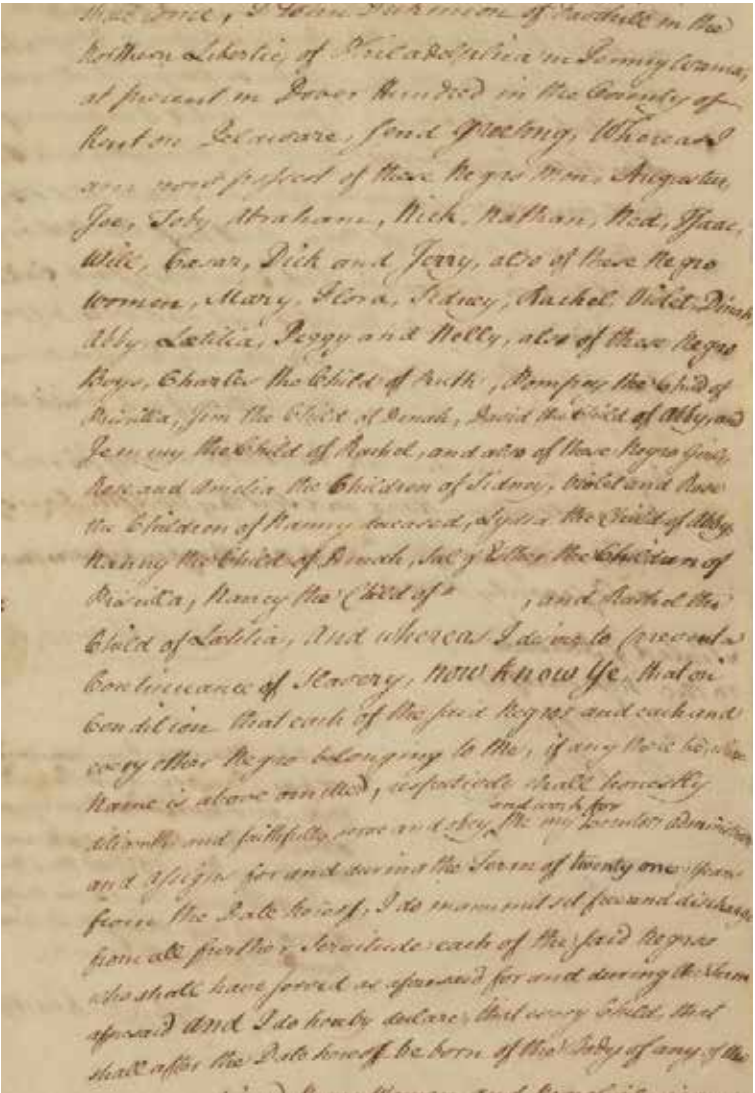 shall come, I John Dickinson of Fairhill in the
Northern Liberties of Philadelphia in Pennsylvania,
at present in Dover Hundred in the County of
Kent on Delaware, send Greeting, Whereas I
am now possessed of these Negro Men, Augustus,
Joe, Toby, Abraham, Nick, Nathan, Ned, Isaac,
Will, Cesar, Dick and Jerry, also of these Negro
Women, Mary, Flora, Sidney, Rachel, Violet, Dinah
Abby, Lætitia, Peggy and Nelly, also of these Negro
Boys, Charles the Child of Ruth, Pompey the Child of
Priscilla, Jim the Child of Dinah, David the Child of Abby, and
Jemmy the Child of Rachel, and also of these Negro Girls,
Rose and Amelia the Children of Sidney, Violet and Rose
the Children of Nanny deceased, Lydia the Child of Abby,
Nanny the Child of Dinah, Sal & Esther the Children of
Priscilla, Nancy the Child of " , and Rachel the
Child of Lætitia, And whereas I desire to prevent a
Continuance of Slavery, now know Ye, that on
Condition that each of the said Negros and each and
every other Negro belonging to Me, if any there be, whose
Name is above omitted, respectively shall honestly
and work for
diligently and faithfully serve and obey Me my Executors administrators
and assigns for and during the Term of twenty one Years
from the Date hereof, I do manumit set free and discharge
from all further Servitude each of the said Negros
who shall have served as aforesaid for and during the Term
aforesaid And I do hereby declare, that every Child, that
shall after the Date hereof be born of the Body of any of the